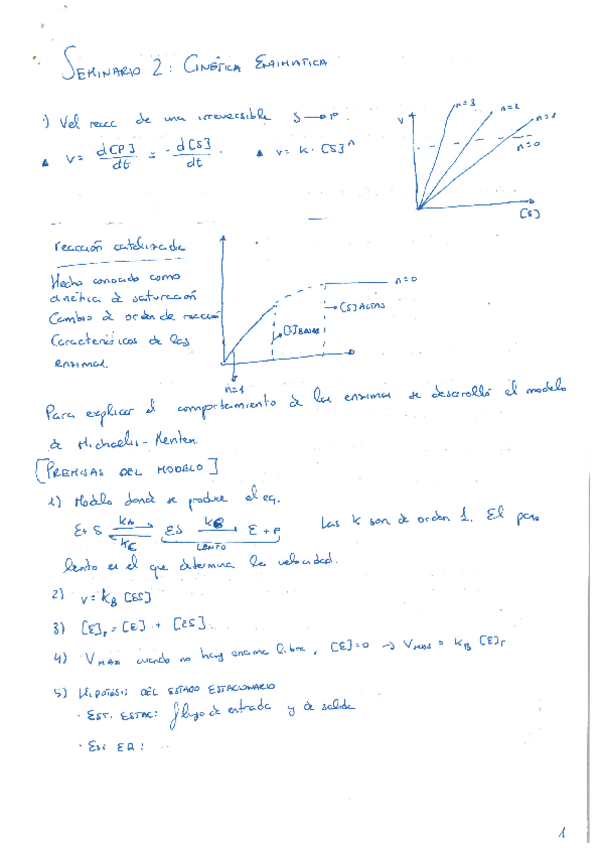 SEMINARIO 2: CINÉTICA ENZIMATICA
·) Vel reacc de una irreversible S → P.
▲ v = d[P]/dt = - d[S]/dt. ▲ v = k · [S]^n
v
n=3
n=2
n=1
n=0
[S]
reacción catalizada
Hecho conocido como
cinética de saturación
Cambio de orden de reacción
Características de las
enzimas.
n=0
[S] ALTAS
[S] BAJAS
n=1
Para explicar el comportamiento de las enzimas se desarrolló el modelo
de Michaelis-Menten
[PREMISAS DEL MODELO]
1) Modelo donde se produce el eq.
E + S ES E + P Las K son de orden 1. El paso
LENTO
lento es el que determina la velocidad.
2) v = kB [ES]
3) [E]T = [E] + [ES].
4) VMAX cuando no hay enzima libre, [E]=0 → VMAX = kB [E]T
5) HIPÓTESIS DEL ESTADO ESTACIONARIO
· EST. ESTAC: flujo de entrada y de salida
· EQ:
1